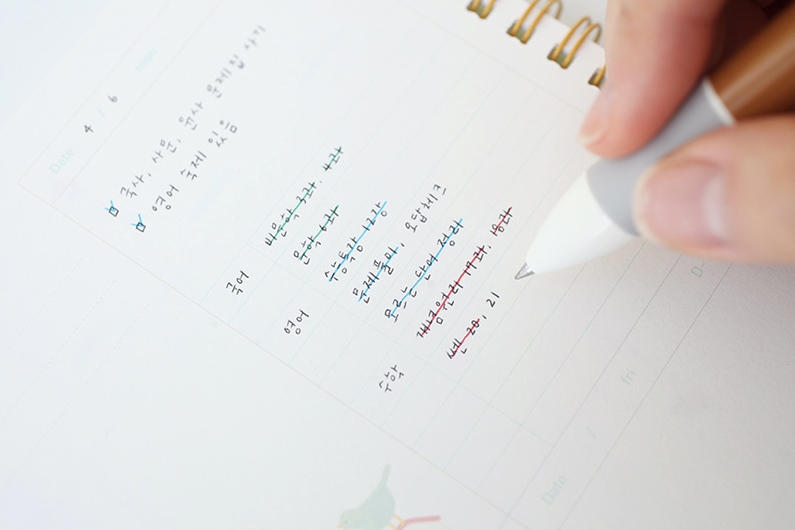 Date 4 / 6 mon
국사, 사문, 윤사 문제집 사기
영어 숙제 있음
국어 비문학 3과, 4과
문학 6과
영어 수능특강 12강
문제풀이, 오답체크
모르는 단어 정리
수학 개념원리 17과, 18과
쎈 20, 21
Date / fri